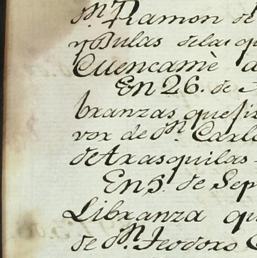 Dn. Ramon de
y Bulas de la q
Cuencamè a
En 26. de
branzas que fir
vor de Dn. Carlo
de Arasquilas
En 5. de Sep
Libranza qu
de Dn. Teodoro